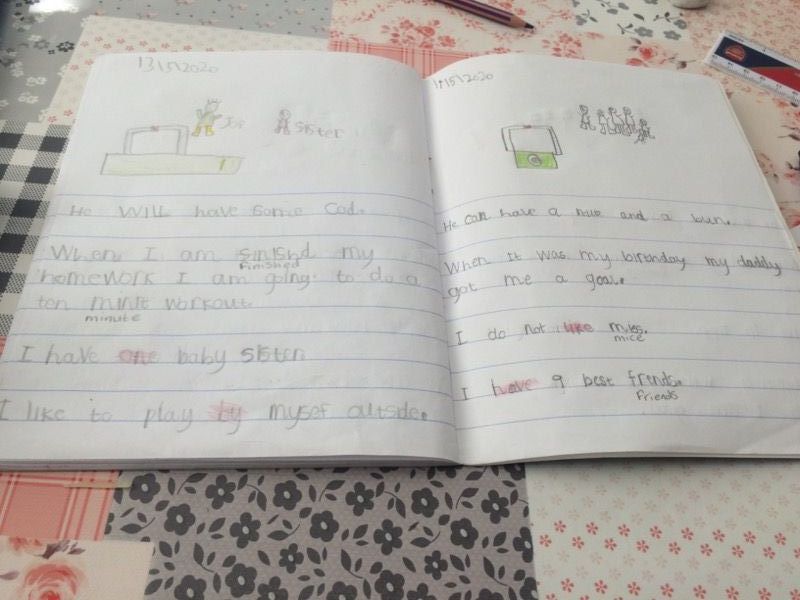 13/5/2020
sister
He WILL have some cod.
When I am finishd my
finished
homework I am going to do a
ten minit workout
minute
I have one baby sister
I like to play by mysef outside.
11/5/2020
He can have a nut and a bun.
When it was my birthday my daddy
got me a goal.
I do not like miss.
mice
I have 9 best frends.
friends